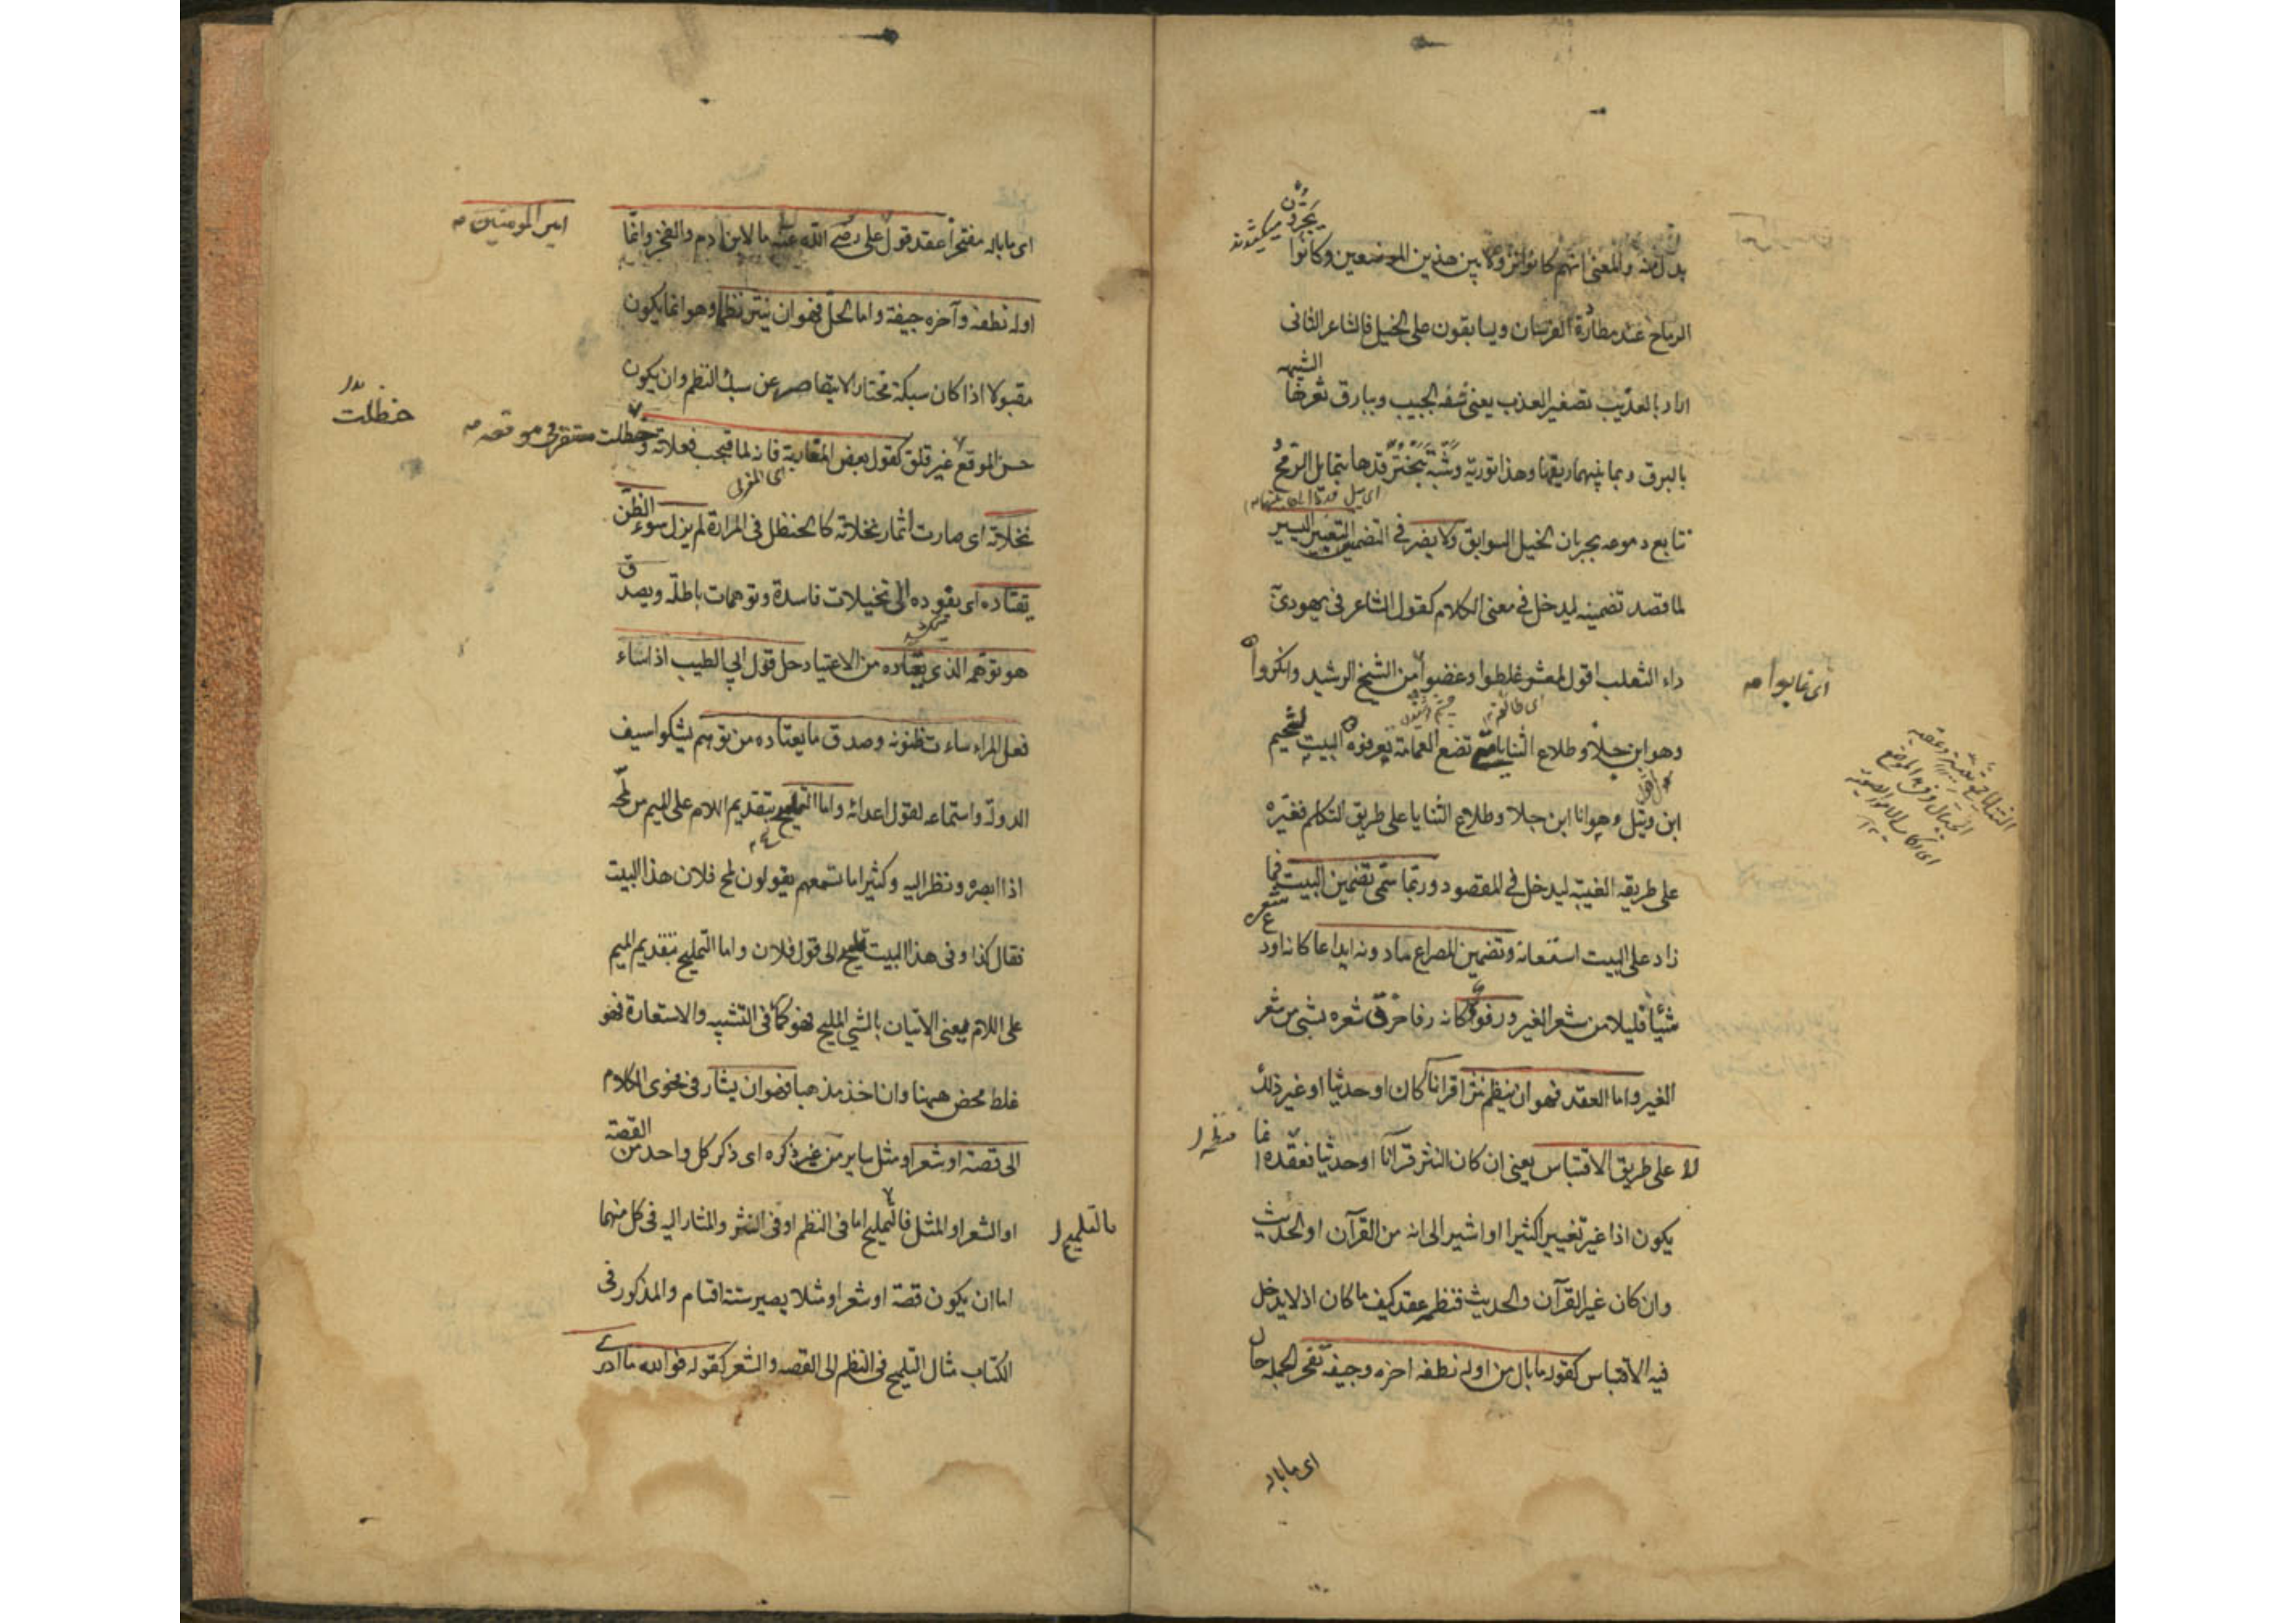 بدل منه والمعنى انهم كانوا نزولا بين هذين الموضعين وكانوا
يجرون
ميكشيدند
الرماح عند مطاردة الفرسان ويسابقون على الخيل فالشاعر الثانى
اراد بالعذيب تصغير العذب يعنى شفه الحبيب وببارق ثغرها
الشبيهه
بالبرق وبما بينهما ريقها وهذا تورية وشبه تبختر قدها بتمايل الرمح
تتابع دموعه بجريان الخيل السوابق ولا يضر فى التضمين التغيير اليسير
لما قصد تضمينه ليدخل فى معنى الكلام كقول الشاعر فى يهودى
داء الثعلب اقول لمعشر غلطوا وغضوا من الشيخ الرشيد وانكروه
اى عابوا
وهو ابن جلا وطلاع الثنايا متى تضع العمامة تعرفوه البيت لسحيم
ابن وثيل وهو انا ابن جلا وطلاع الثنايا على طريق التكلم فغيره
على طريقه الغيبة ليدخل فى المقصود وربما سمى تضمين البيت فما
زاد على البيت استعانة وتضمين المصراع مادونه ايداعا كانه اودع
شعره
شيئا قليلا من شعر الغير ورفوا كانه رفا خرق شعره بشى من شعر
الغير واما العقد فهو ان ينظم نثرا قرانا كان او حديثا او غير ذلك
لا على طريق الاقتباس يعنى ان كان النثر قرآنا او حديثا فعقده انما
يكون اذا غير تغييرا كثيرا او اشير الى انه من القرآن او الحديث
وان كان غير القرآن والحديث فنظمه عقد كيف ما كان اذ لا يدخل
فيه الاقتباس كقوله ما بال من اوله نطفه اخره وجيفة يفخر الجمله حال
اى ما باله
اى ما باله مفتخرا عقد قول على رضى الله عنه ما لابن ادم والفخر وانما
امير المومنين
اوله نطفة وآخره جيفة واما الحل فهو ان ينثر نظم وهو انما يكون
مقبولا اذا كان سبكه مختارا لا يتقاصر عن سبك النظم وان يكون
حسن الموقع غير قلق كقول بعض المغاربة فانه لما قبحت فعلاته وحنظلت
حنظلت
مستقر فى موقعه
نخلاته اى صارت ثمار نخلاته كالحنظل فى المرارة لم يزل سوء الظن
يقتاده اى يقوده الى تخيلات فاسدة وتوهمات باطلة ويصدق
هو توهمه الذى يعتاده من الاعتياد حل قول ابى الطيب اذا ساء
فعل المرء ساءت ظنونه وصدق ما يعتاده من توهم يشكو سيف
الدولة واستماعه لقول اعدائه واما التلميح بتقديم اللام على الميم من لمحه
اذا ابصره ونظر اليه وكثيرا ما تسمعهم يقولون لمح فلان هذا البيت
فقال كذا وفى هذا البيت تلميح الى قول فلان واما التمليح بتقديم الميم
على اللام بمعنى الاتيان بالشى المليح فهو كما فى التشبيه والاستعارة فهو
غلط محض ههنا وان اخذ مذهبا فهو ان يشار فى فحوى الكلام
الى قصة او شعر او مثل ساير من غير ذكره اى ذكر كل واحد من القصة
او الشعر او المثل فالتمليح اما فى النظم او فى النثر والمشار اليه فى كل منهما
بالتلميح
اما ان يكون قصة او شعرا او مثلا يصير ستة اقسام والمذكور فى
الكتاب مثال التلميح فى النظم الى القصه والشعر كقوله فوالله ما ادرى